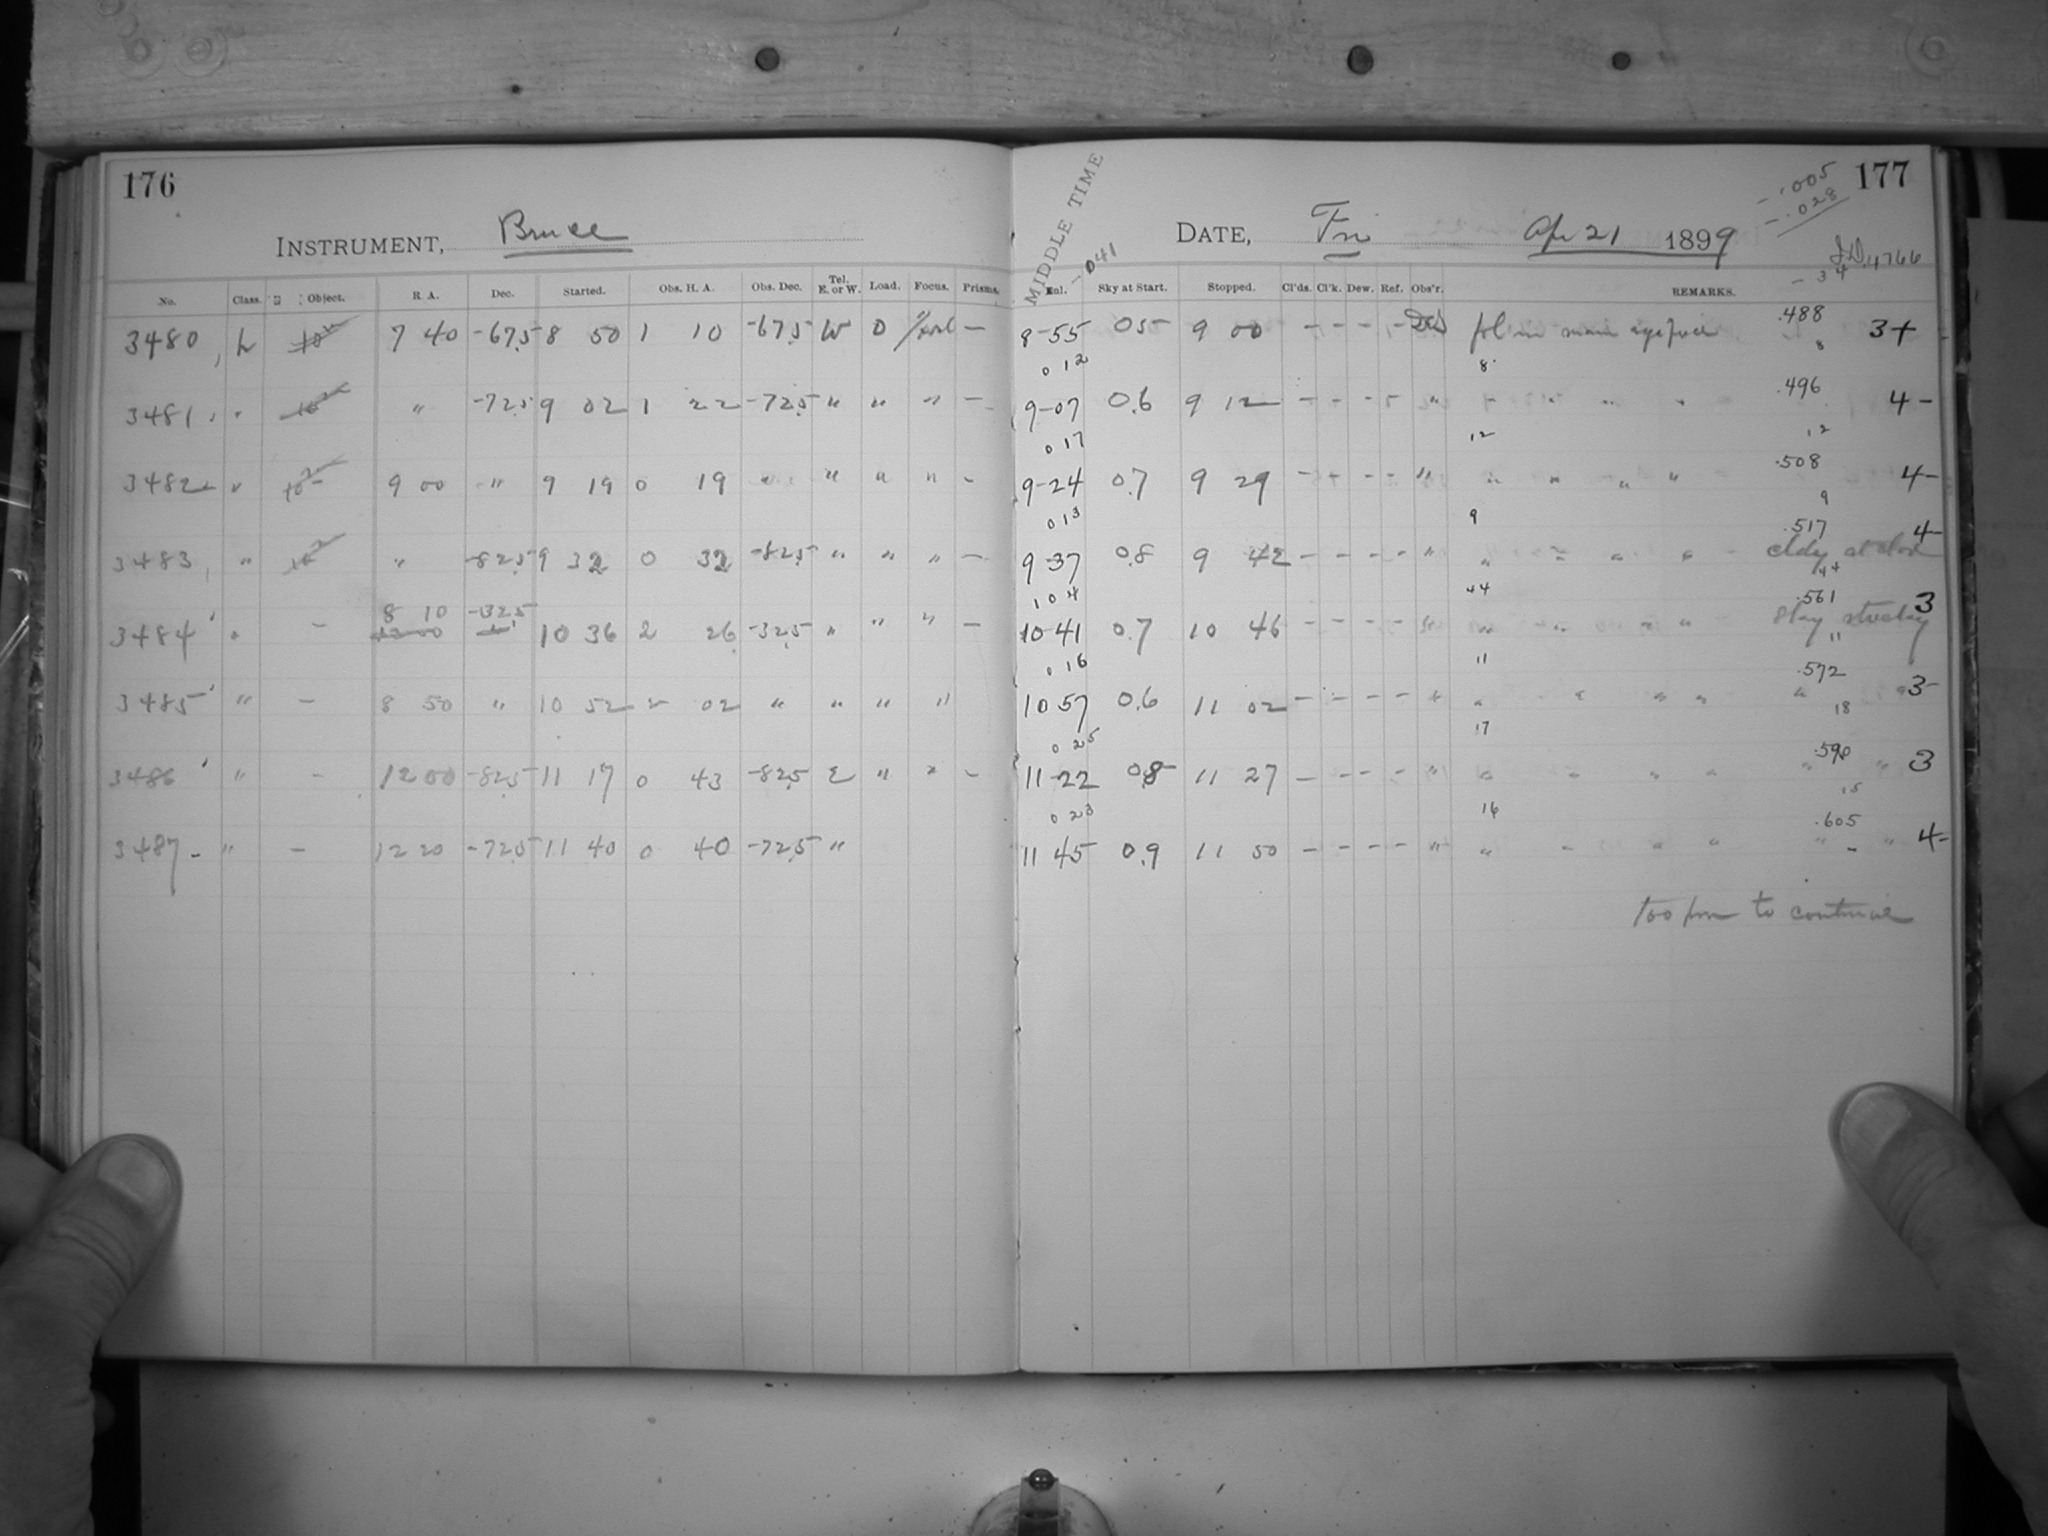 176
INSTRUMENT, Bruce
No. Class. Object. R. A. Dec. Started. Obs. H. A. Obs. Dec. Tel. E. or W. Load. Focus. Prisms.
3480 L 7 40 -67.5 8 50 1 10 -67.5 W 0 —
3481 " " -72.5 9 02 1 22 -72.5 " " " —
3482 " 9 00 " 9 19 0 19 " " " " -
3483 " " -82.5 9 32 0 32 -82.5 " " " —
3484 " - 8 10 12 00 -32.5 10 36 2 26 -32.5 " " " —
3485 " - 8 50 " 10 52 2 02 " " " "
3486 " - 12 00 -82.5 11 17 0 43 -82.5 E " " -
3487 - " - 12 20 -72.5 11 40 0 40 -72.5 "
MIDDLE TIME
-.041
177
-.005
-.028
-34
DATE, Fri Apr 21 1899
J.D. 4766
Enl. Sky at Start. Stopped. Cl'ds. Cl'k. Dew. Ref. Obs'r. REMARKS.
8-55 05 9 00 - - - - fol in main eyepiece .488 3+
0 12 8 8
9-07 0.6 9 12 - - - - " " " " " .496 4-
0 17 12 12
9-24 0.7 9 29 - + - - " " " " " .508 4-
0 13 9 9
9-37 0.8 9 42 - - - - " " " " " .517 4-
cldy at close
1 04 44 44
10-41 0.7 10 46 - - - - " " " " " .561 3
Sky streaky
0 16 11 11
10 57 0.6 11 02 - - - - " " " " " .572 " " 3-
0 25 17 18
11-22 0.8 11 27 - - - - " " " " " .590 " " 3
0 23 16 15
11 45 0.9 11 50 - - - - " " " " " .605 " " 4-
too poor to continue